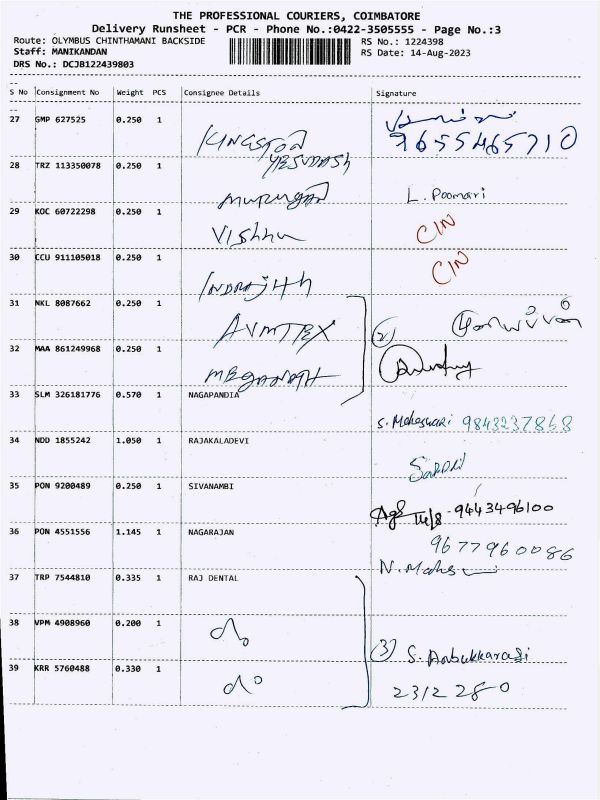 THE PROFESSIONAL COURIERS, COIMBATORE
Delivery Runsheet - PCR - Phone No.:0422-3505555 - Page No.:3
Route: OLYMBUS CHINTHAMANI BACKSIDE
RS No.: 1224398
Staff: MANIKANDAN
RS Date: 14-Aug-2023
DRS No.: DCJB122439803
S No Consignment No Weight PCS Consignee Details Signature
27 GMP 627525 0.250 1
KINGSTON
YESUDASH
9655465710
28 TRZ 113350078 0.250 1
Murugan
L. Poomari
29 KOC 60722298 0.250 1
Vishnu
CIN
30 CCU 911105018 0.250 1
INDRAJITH
CIN
31 NKL 8087662 0.250 1
AVMTEX
(2)
32 MAA 861249968 0.250 1
MEGANATH
33 SLM 326181776 0.570 1 NAGAPANDIA
S. Maheswari 9843237858
34 NDD 1855242 1.050 1 RAJAKALADEVI
35 PON 9200489 0.250 1 SIVANAMBI
14/8 - 9443496100
36 PON 4551556 1.145 1 NAGARAJAN
9677960086
37 TRP 7544810 0.335 1 RAJ DENTAL
38 VPM 4908960 0.200 1
do
(3) S. Anbukkarasi
39 KRR 5760488 0.330 1
do
2312280